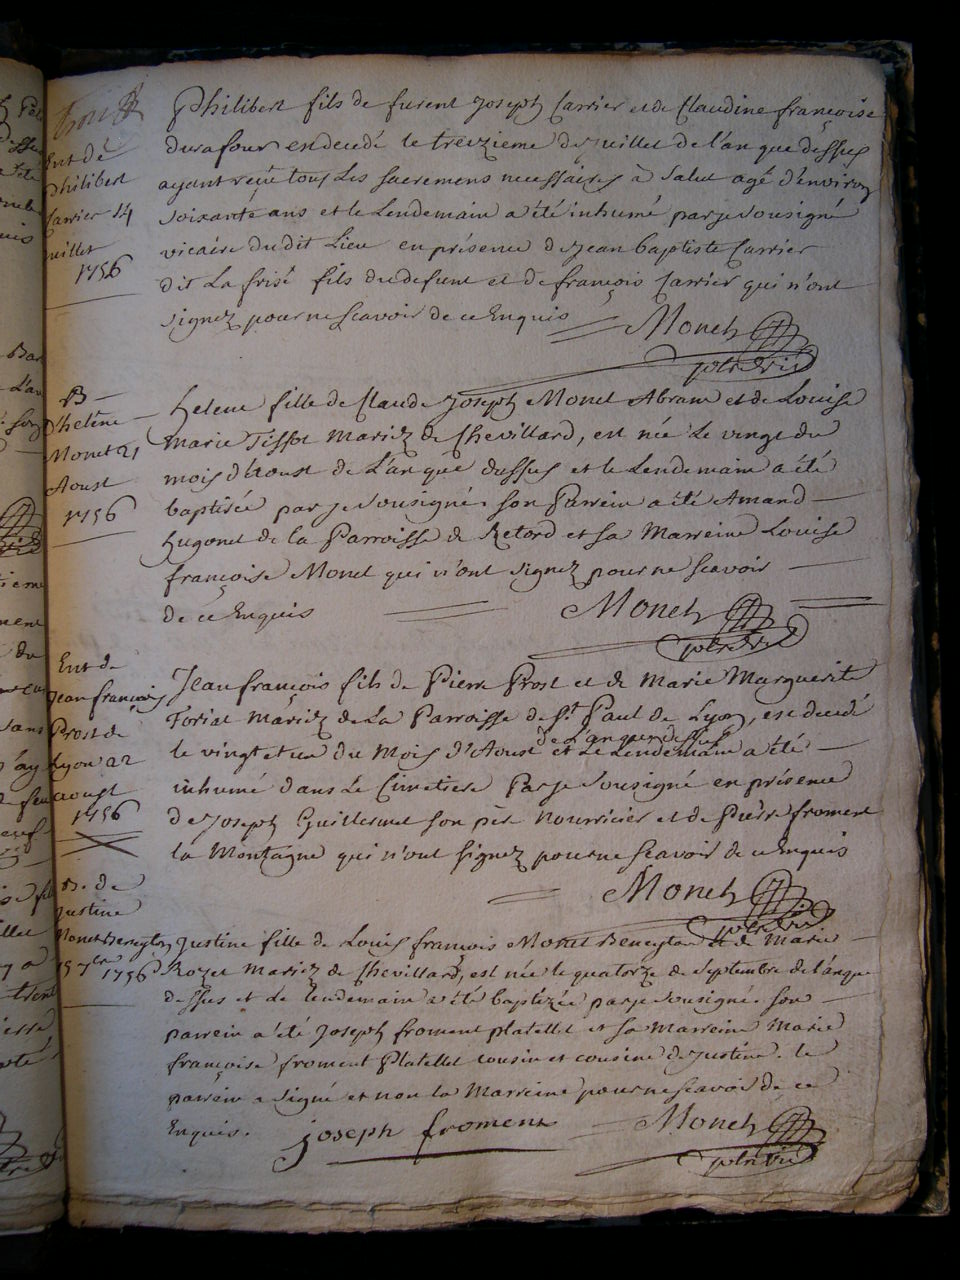 Ent de
philibert
Carrier 14
juillet
1756
Philibert fils de furent Joseph Carrier et de Claudine françoise
durafour en decedé le treizieme de juillet de l'an que dessus
ayant reçu tous Les sacremens necessaires à salut agé d'environ
soixante ans et le Lendemain a été inhumé par je sousigné
vicaire du dit Lieu en présence de jean baptiste Carrier
dit La frisé fils du defunt et de françois Carrier qui n'ont
signez pour ne scavoir de ce Enquis Monet
ptre vic
B
d'heléne
Monet 21
Aoust
1756
helene fille de Claude Joseph Monet Abram et de Louise
marie Tissot mariez de Chevillard, est née Le vingt du
mois d'Aoust de L'an que dessus et le Lendemain a été
baptisée par je sousigné. son Parrein a été Amand
hugonet de la Parroisse de Retord et sa Marreine Louise
françoise Monet qui n'ont signez pour ne scavoir
de ce Enquis Monet
ptre vic
Ent de
Jean françois
Prost de
Lyon 22
aoust
1756
Jean françois fils de Pierre Prost et de Marie Marguerite
Toriat mariez de La Parroisse de St. Paul de Lyon, est decedé
de L'an que dessus
le vingt et un du Mois d'Aoust et Le Lendemain a été
inhumé dans Le Cimetiere Par je sousigné en présence
de Joseph Guillermet son pèr nourricier et de Pierre froment
la Montagne qui n'ont signez pour ne scavoir de ce Enquis
Monet
ptre vic
B. de
justine
Monet Beneyton
15 7bre 1756
Justine fille de Louis françois Monet Beneyton et de Marie
Rozet mariez de Chevillard, est née le quatorze de septembre de l'an que
dessus et le lendemain a été baptizée par je sousigné. son
parrein a été Joseph froment platellet et sa Marreine Marie
françoise froment Platellet cousin et cousine de Justine. le
parrein a signé et non la Marreine pour ne scavoir de ce
Enquis. joseph froment Monet
ptre vic